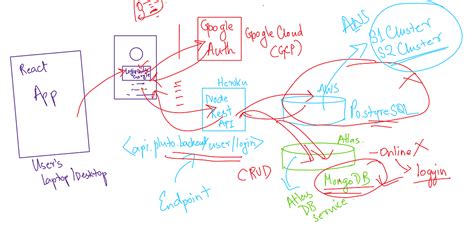 React
App
User's
laptop/Desktop
Google
Auth
Google Cloud
(GCP)
Heroku
Node
Rest
API
<api.pluto.backend/user/login>
Endpoint
CRUD
AWS
S1 Cluster
S2 Cluster
AWS
PostgreSQL
Atlas
MongoDB
Online X
loggin
Atlas
DB
Service